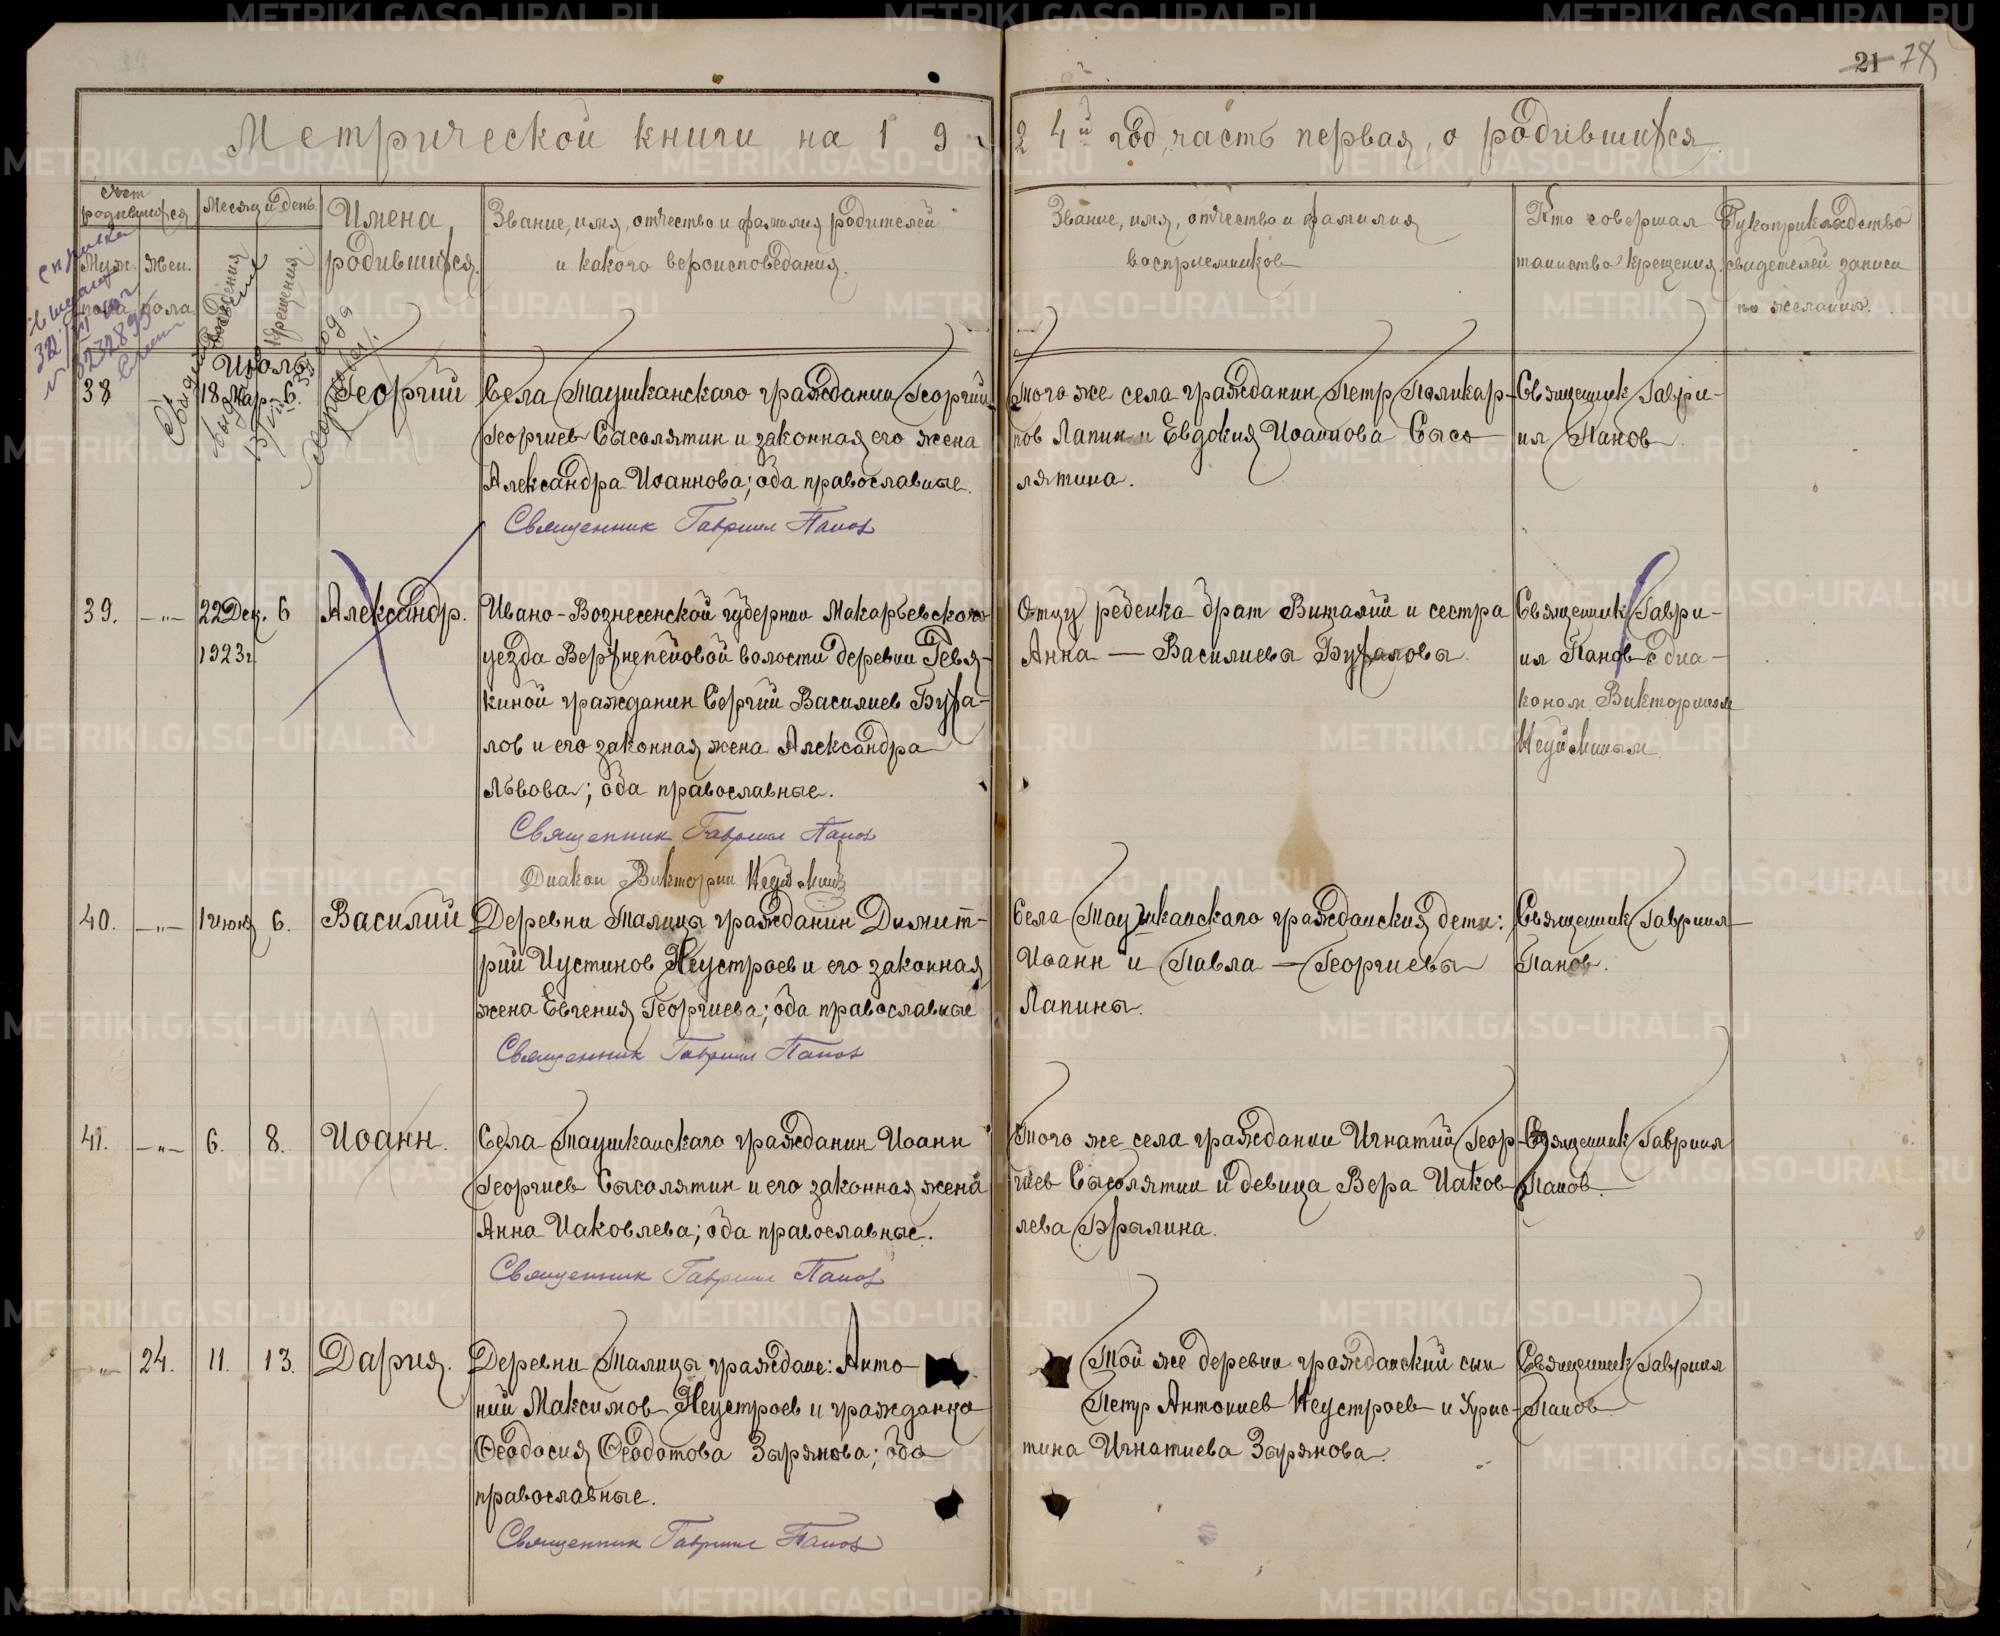 21 78
Метрической книги на 1924й год, часть первая, о родившихся
Счет родившихся
Месяц и день
Имена родившихся.
Звание, имя, отчество и фамилия родителей
и какого вероисповедания.
Звание, имя, отчество и фамилия
восприемников
Кто совершал
таинство крещения.
Рукоприкладство
свидетелей записи
по желанию.
Муж. пола
Жен. пола
рождения
крещения
Июль
38
18 Мар.
6.
Георгий
Села Таушканского гражданин Георгий
Георгиев Сысолятин и законная его жена
Александра Иоаннова; оба православные.
Священник Гавриил Панов
Того же села гражданин Петр Поликар-
пов Лапин и Евдокия Иоаннова Сысо-
лятина.
Священник Гаври-
ил Панов
39.
22 Дек.
1923г.
6
Александр.
Ивано-Вознесенской губернии Макарьевского
уезда Верхнепейовой волости деревни Ревя-
киной гражданин Сергий Василиев Буха-
лов и его законная жена Александра
Львова; оба православные.
Священник Гавриил Панов
Диакон Викторин Неуймин
Отцу ребенка брат Виталий и сестра
Анна — Василиевы Бухаловы.
Священник Гаври-
ил Панов с диа-
коном Викторином
Неуйминым.
40.
1 июня
6.
Василий
Деревни Талицы гражданин Димит-
рий Иустинов Неустроев и его законная
жена Евгения Георгиева; оба православные
Священник Гавриил Панов
Села Таушканского гражданския дети:
Иоанн и Павла — Георгиевы
Лапины.
Священник Гавриил
Панов.
41.
6.
8.
Иоанн.
Села Таушканского гражданин Иоанн
Георгиев Сысолятин и его законная жена
Анна Иаковлева; оба православные.
Священник Гавриил Панов
Того же села гражданин Игнатий Геор-
гиев Сысолятин и девица Вера Иаков-
лева Брылина.
Священник Гавриил
Панов.
24.
11.
13.
Дария.
Деревни Талицы граждане: Анто-
ний Максимов Неустроев и гражданка
Феодосия Феодотова Зырянова; оба
православные.
Священник Гавриил Панов
Той же деревни гражданский сын
Петр Антониев Неустроев и Хрис-
тина Игнатиева Зырянова.
Священник Гавриил
Панов
METRIKI.GASO-URAL.RU